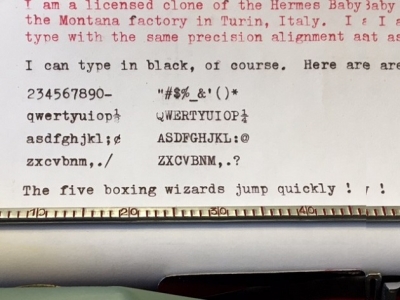 I am a licensed clone of the Hermes Baby
the Montana factory in Turin, Italy. I
type with the same precision alignment aat as
I can type in black, or course. Here are are
234567890- "#$%_&'()*
qwertyuiop½ QWERTYUIOP¼
asdfghjkl;¢ ASDFGHJKL:@
zxcvbnm,./ ZXCVBNM,.?
The five boxing wizards jump quickly ! !
10 20 30 40